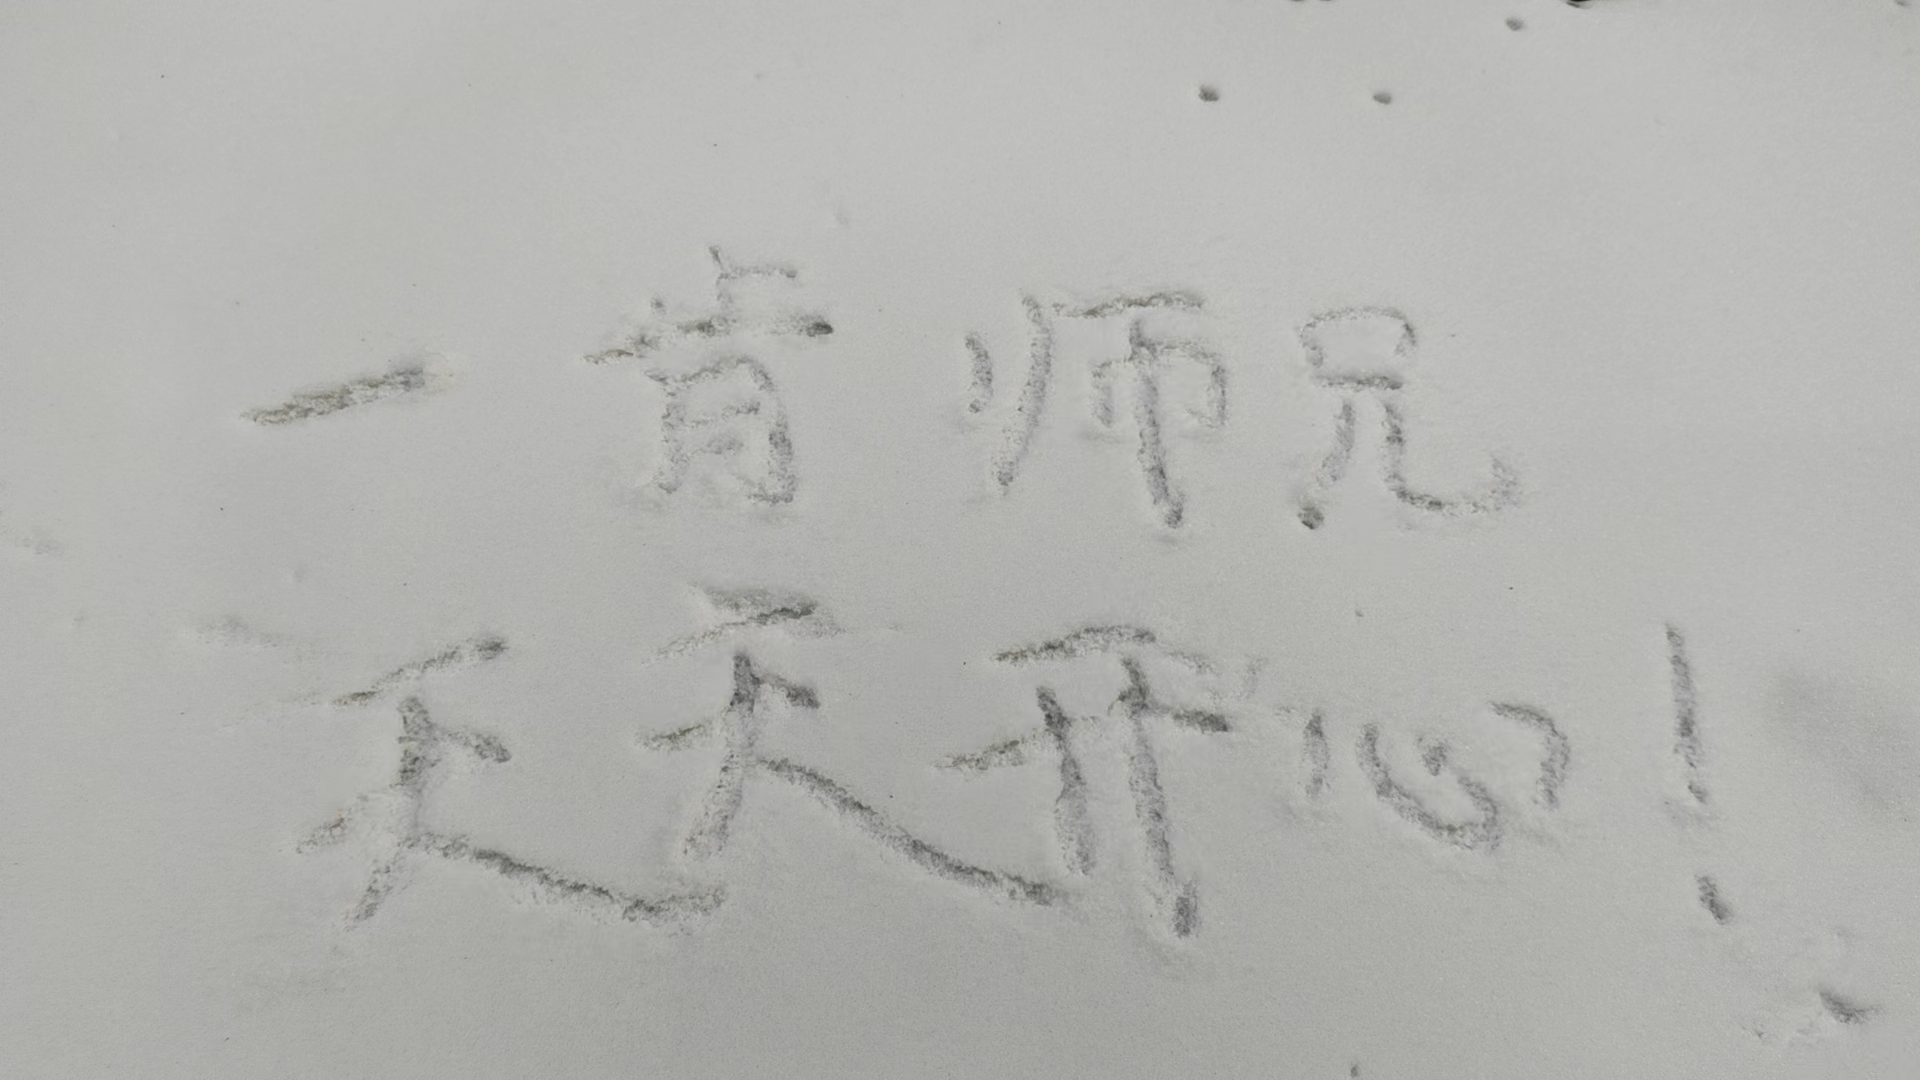 一肯师兄
天天开心!